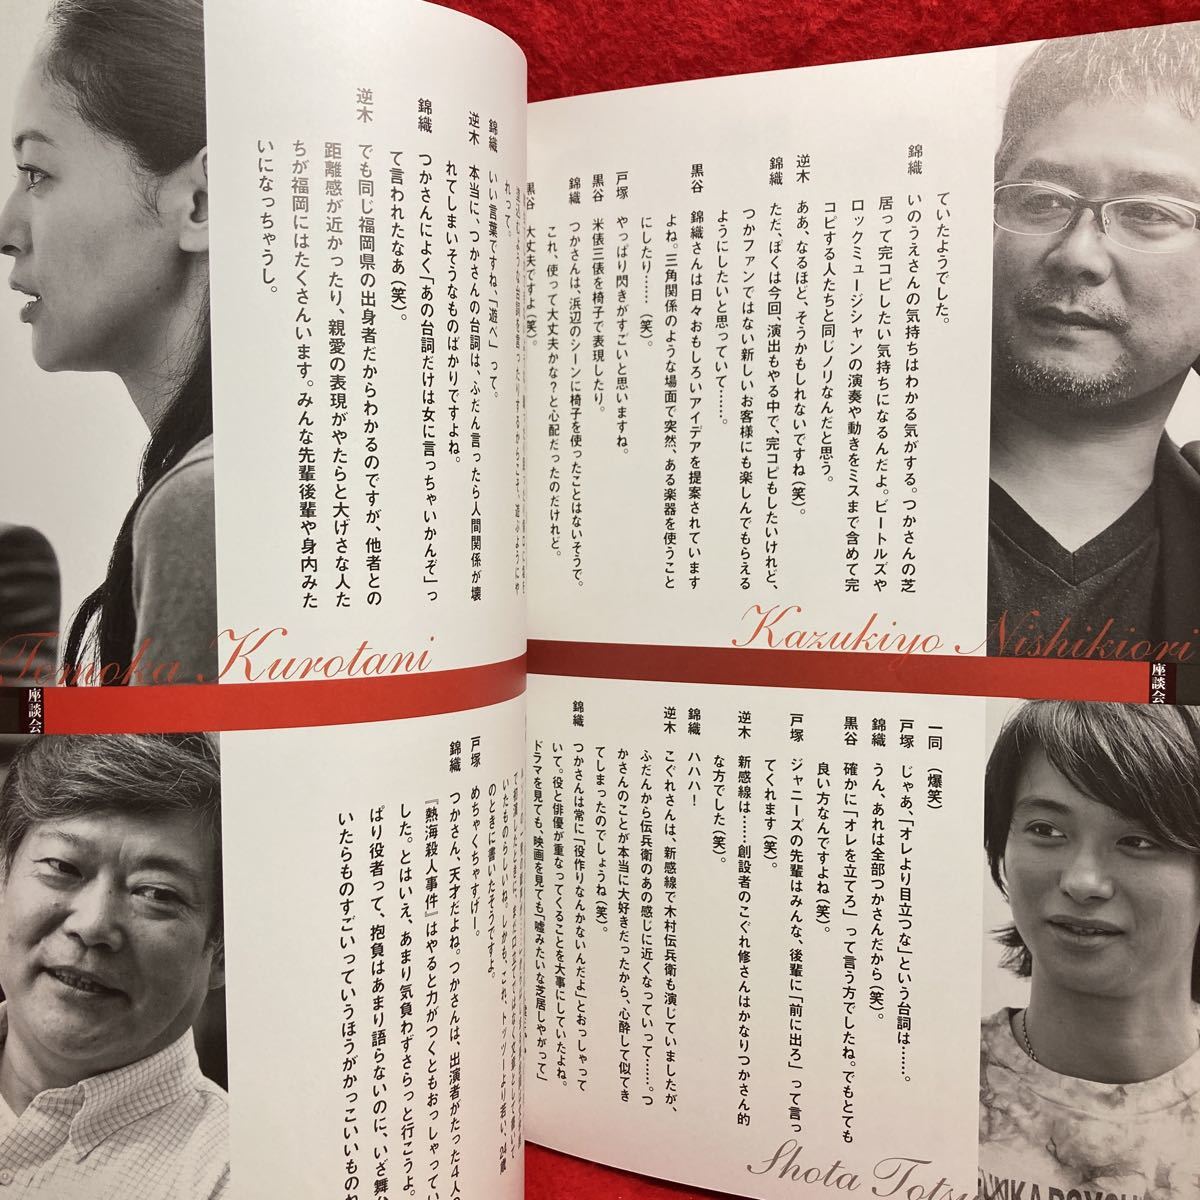 ていたようでした。
錦織 いのうえさんの気持ちはわかる気がする。つかさんの芝
居って完コピしたい気持ちになるんだよ。ビートルズや
ロックミュージシャンの演奏や動きをミスまで含めて完
コピする人たちと同じノリなんだと思う。
逆木 ああ、なるほど、そうかもしれないですね(笑)。
錦織 ただ、ぼくは今回、演出もやる中で、完コピもしたいけれど、
つかファンではない新しいお客様にも楽しんでもらえる
ようにしたいと思っていて……。
黒谷 錦織さんは日々おもしろいアイデアを提案されています
よね。三角関係のような場面で突然、ある楽器を使うこと
にしたり……(笑)。
戸塚 やっぱり閃きがすごいと思いますね。
黒谷 米俵三俵を椅子で表現したり。
錦織 つかさんは、浜辺のシーンに椅子を使ったことはないそうで。
これ、使って大丈夫かな?と心配だったのだけれど。
黒谷 大丈夫ですよ(笑)。
れって。
錦織 いい言葉ですね、「遊べ」って。
逆木 本当に、つかさんの台詞は、ふだん言ったら人間関係が壊
れてしまいそうなものばかりですよね。
錦織 つかさんによく「あの台詞だけは女に言っちゃいかんぞ」っ
て言われたなあ(笑)。
逆木 でも同じ福岡県の出身者だからわかるのですが、他者との
距離感が近かったり、親愛の表現がやたらと大げさな人た
ちが福岡にはたくさんいます。みんな先輩後輩や身内みた
いになっちゃうし。
Kazukiyo Nishikiori
Tomoka Kurotani
座談会
座談会
一同 (爆笑)
戸塚 じゃあ、「オレより目立つな」という台詞は……。
錦織 うん、あれは全部つかさんだから(笑)。
黒谷 確かに「オレを立てろ」って言う方でしたね。でもとても
良い方なんですよね(笑)。
戸塚 ジャニーズの先輩はみんな、後輩に「前に出ろ」って言っ
てくれます(笑)。
逆木 新感線は……創設者のこぐれ修さんはかなりつかさん的
な方でした(笑)。
錦織 ハハハ!
逆木 こぐれさんは、新感線で木村伝兵衛も演じていましたが、
ふだんから伝兵衛のあの感じに近くなっていって……。つ
かさんのことが本当に大好きだったから、心酔して似てき
てしまったのでしょうね(笑)。
錦織 つかさんは常に「役作りなんかないんだよ」とおっしゃって
いて。役と俳優が重なってくることを大事にしていたよね。
ドラマを見ても、映画を見ても「嘘みたいな芝居しやがって」
いたものらしいね。しかも、これ、トッツーより若い、24歳
のときに書いたそうですよ。
戸塚 めちゃくちゃすげー。
錦織 つかさん、天才だよね。つかさんは、出演者がたった4人の
『熱海殺人事件』はやると力がつくともおっしゃってい
した。とはいえ、あまり気負わずさらっと行こうよ。
ぱり役者って、抱負はあまり語らないのに、いざ舞台
いたらものすごいっていうほうがかっこいいものね
Shota Totsu